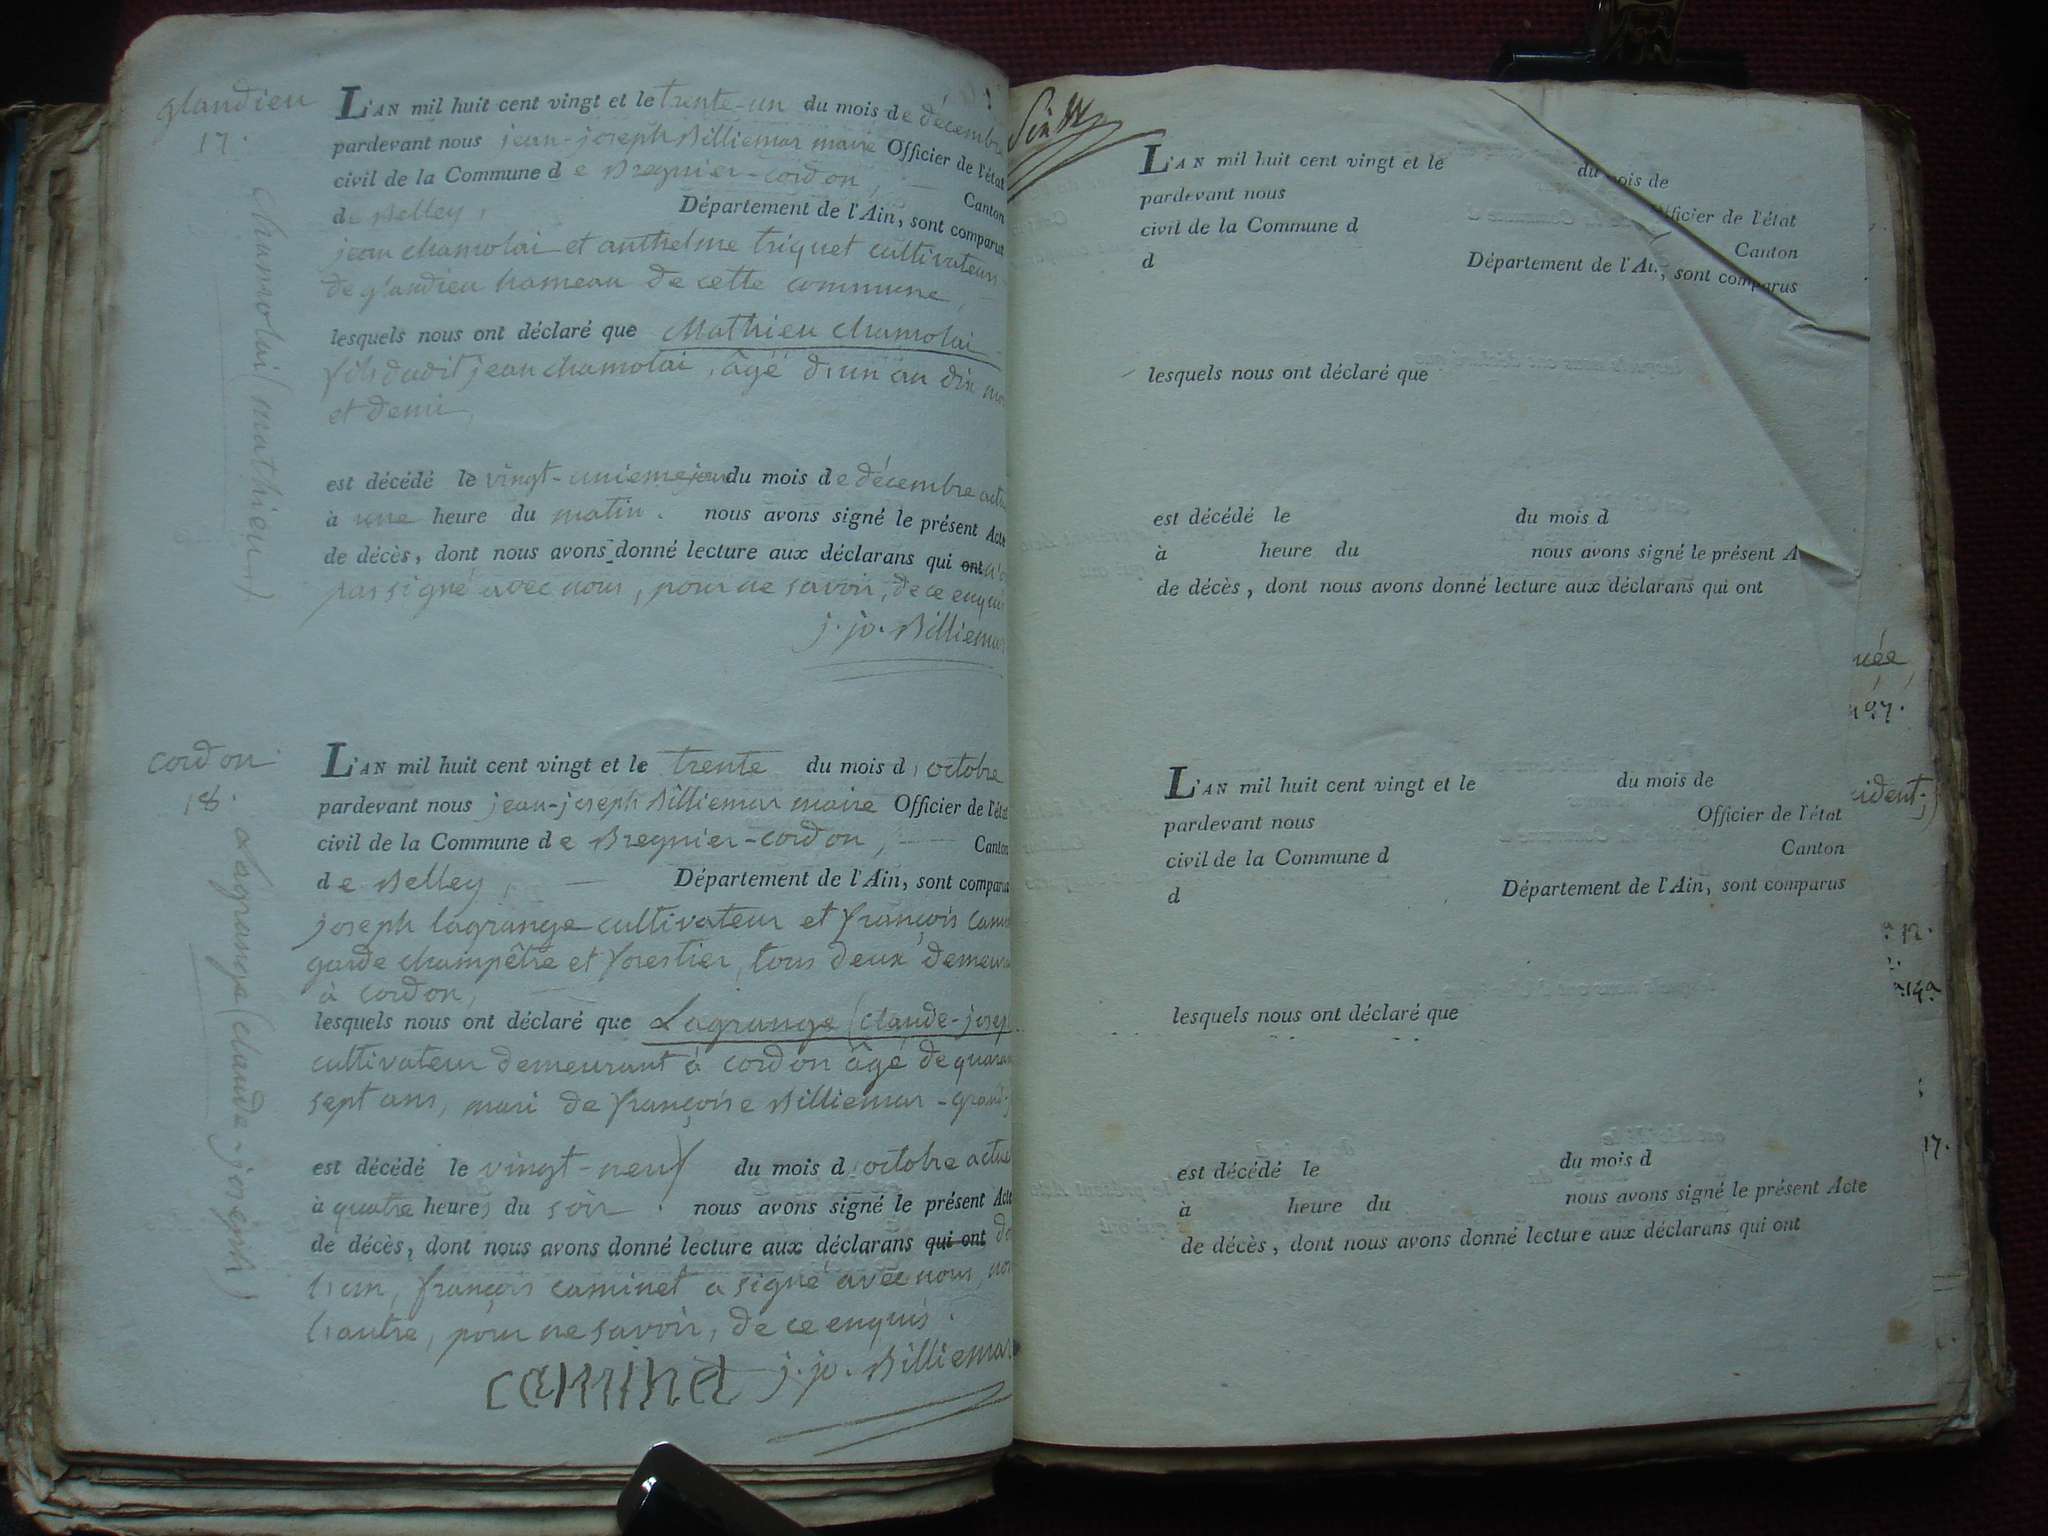 glandieu
17.
chamolai (mathieu)
L'AN mil huit cent vingt et le trente-un du mois de décembre
pardevant nous jean-joseph Billiemar maire Officier de l'état
civil de la Commune de Bregnier-cordon, Canton
de Belley, Département de l'Ain, sont comparus
jean chamolai et anthelme triquet cultivateurs
de glandieu hameau de cette commune,
lesquels nous ont déclaré que Mathieu chamolai
fils dudit jean chamolai, âgé d'un an dix moi
et demi,
est décédé le vingt-unieme jour du mois de décembre actu
à une heure du matin. nous avons signé le présent Acte
de décès, dont nous avons donné lecture aux déclarans qui ont n'o
pas signé avec nous, pour ne savoir, de ce enquis
j. jo. Billiemar
cordon
18.
Lagrange (claude-joseph)
L'AN mil huit cent vingt et le trente du mois d'octobre
pardevant nous jean-joseph Billiemar maire Officier de l'état
civil de la Commune de Bregnier-cordon, Canton
de Belley, Département de l'Ain, sont comparus
joseph lagrange cultivateur et françois cami
garde champêtre et forestier, tous deux demeura
à cordon,
lesquels nous ont déclaré que Lagrange (claude-josep
cultivateur demeurant à cordon âgé de quaran
sept ans, mari de françoise Billiemar-grand
est décédé le vingt-neuf du mois d'octobre actuel
à quatre heures du soir. nous avons signé le présent Acte
de décès, dont nous avons donné lecture aux déclarans qui ont de
l'un, françois caminet a signé avec nous, non
l'autre, pour ne savoir, de ce enquis.
caminet j. jo. Billiemar
L'AN mil huit cent vingt et le du mois de
pardevant nous Officier de l'état
civil de la Commune d Canton
d Département de l'Ain, sont comparus
lesquels nous ont déclaré que
est décédé le du mois d
à heure du nous avons signé le présent A
de décès, dont nous avons donné lecture aux déclarans qui ont
L'AN mil huit cent vingt et le du mois de
pardevant nous Officier de l'état
civil de la Commune d Canton
d Département de l'Ain, sont comparus
lesquels nous ont déclaré que
est décédé le du mois d
à heure du nous avons signé le présent Acte
de décès, dont nous avons donné lecture aux déclarans qui ont
uée
cident;)
12.
14.
17.